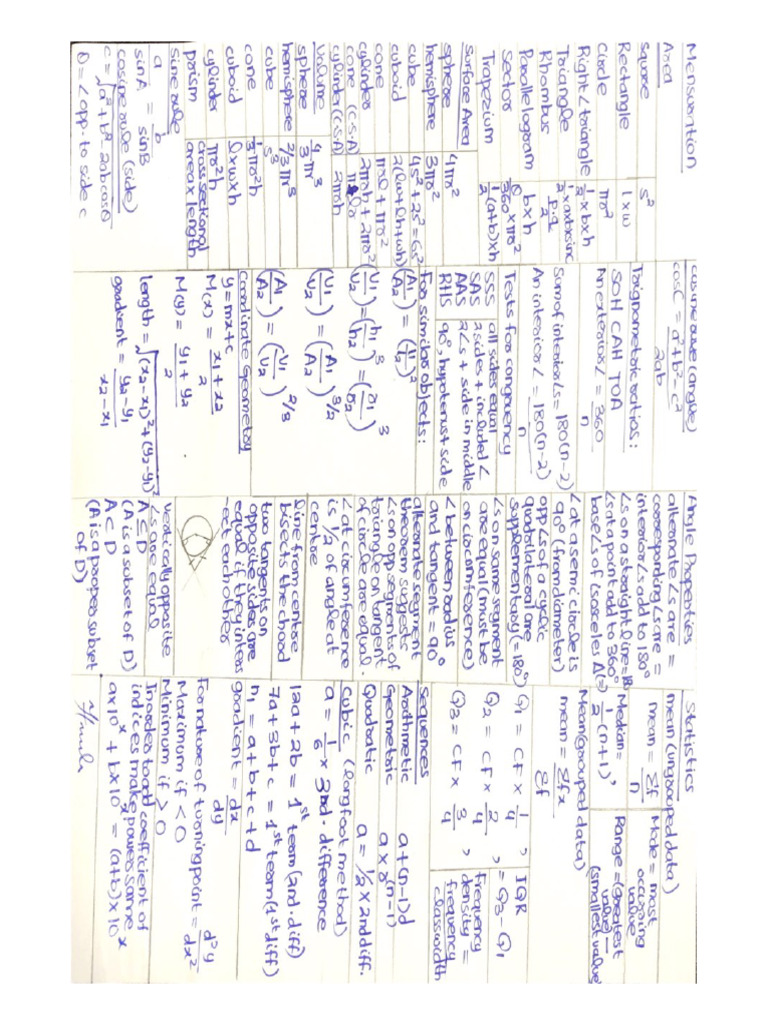 Mensuration
Area
Square s²
Rectangle l x w
Circle πr²
Right∠triangle ½ x b x h
Triangle ½ x axbxsinc
Rhombus p.q/2
Parallelogram b x h
Sector θ/360 x πr²
Trapezium ½ (a+b)xh
Surface Area
sphere 4πr²
hemisphere 3πr²
cube 4s² + 2s² = 6s²
cuboid 2(lw+lh+wh)
cone πrl + πr²
cylinder 2πrh + 2πr²
cone (C.S.A) πrl
cylinder (C.S.A) 2πrh
Volume
sphere 4/3 πr³
hemisphere 2/3 πr³
cube s³
cone ⅓ πr²h
cuboid l x w x h
cylinder πr²h
prism cross sectional area x length
sine rule
a/sinA = b/sinB
cosine rule (side)
c = √a² + b² - 2ab cosθ
θ = ∠ opp. to side c
cosine rule (angle)
cosC = a² + b² - c² / 2ab
Trignometric ratios:
SOH CAH TOA
An exterior ∠ = 360/n
Sum of interior ∠s = 180(n-2)
An interior ∠ = 180(n-2)/n
Tests for congruency
SSS all sides equal
SAS 2 sides + included ∠
AAS 2∠s + side in middle
RHS 90°, hypotenust side
For similar objects:
(A₁/A₂) = (l₁/l₂)²
(V₁/V₂) = (h₁/h₂)³ = (r₁/r₂)³
(V₁/V₂) = (A₁/A₂)^3/2
(A₁/A₂) = (V₁/V₂)^2/3
Coordinate Geometry
y = mx + c
M(x) = x₁ + x₂ / 2
M(y) = y₁ + y₂ / 2
length = √(x₂-x₁)² + (y₂-y₁)²
gradient = y₂ - y₁ / x₂ - x₁
Angle Properties
alternate ∠ are =
corresponding ∠s are =
interior ∠s add to 180°
∠s on a straight line = 180
∠s at a point add to 360°
base ∠s of isosceles Δ (=)
∠ at a semi circle is
90° (from diameter)
opp ∠s of a cyclic
quadrilateral are
supplementary (=180°)
∠s on same segment
are equal (must be
on circumference)
∠ between radius
and tangent = 90°
alternate segment
theorem suggests
∠s on opp segments of
triangle on tangent
of circle are equal.
∠ at circumference
is ½ of angle at
centre
line from centre
bisects the chord
two tangents on
opposite sides are
equal if they inters
-ect each other
vertically opposite
∠s are equal
A ⊆ D
(A is a subset of D)
A ⊂ D
(A is a proper subset
of D)
Statistics
mean (ungrouped data)
mean = Σf/n
Mode = most
occuring
value
Median =
½ (n+1)'
Range = (Greatest
value) -
(smallest value)
Mean (grouped data)
mean = Σfx/Σf
Q₁ = CF x ¼,
Q₂ = CF x 2/4,
Q₃ = CF x ¾,
IQR
= Q₃ - Q₁
frequency
density =
frequency
classwidth
Sequences
Arithmetic a + (n-1)d
Geometric a x r^(n-1)
Quadratic a = ½ x 2nd diff.
Cubic (long foot method)
a = 1/6 x 3rd. difference
12a + 2b = 1st term (2nd. diff)
7a + 3b + c = 1st term (1st diff)
n₁ = a + b + c + d
gradient = dx/dy
For nature of turning point = d²y/dx²
Maximum if < 0
Minimum if > 0
In order to add coefficient of
indices make powers same
ax10ˣ + bx10ˣ = (a+b) x 10ˣ